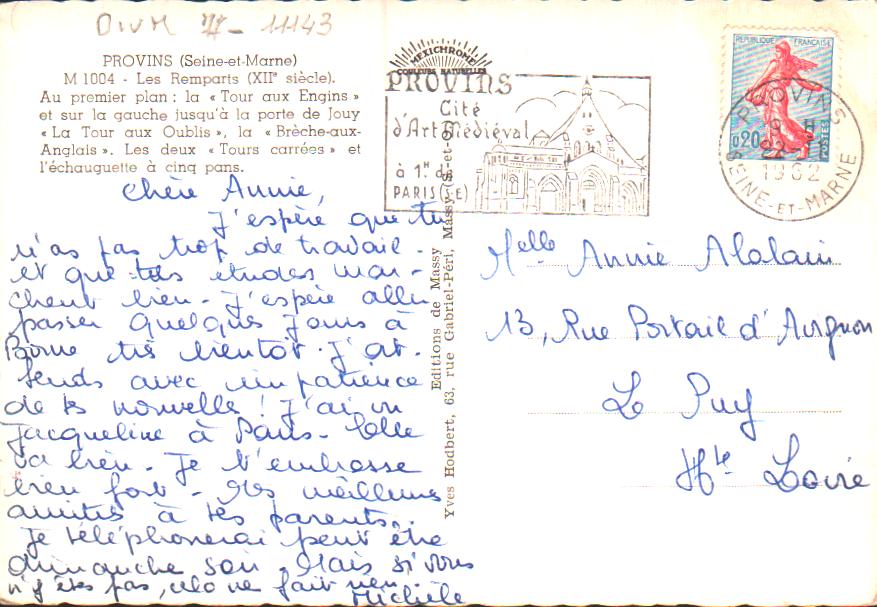 DIVM 77 - 11143
PROVINS (Seine-et-Marne)
M 1004 - Les Remparts (XIIe siècle).
Au premier plan : la « Tour aux Engins »
et sur la gauche jusqu'à la porte de Jouy
« La Tour aux Oublis », la « Brèche-aux-
Anglais ». Les deux « Tours carrées » et
l'échauguette à cinq pans.
MEXICHROME
COULEURS NATURELLES
PROVINS
Cité
d'Art Médiéval
à 1H de
PARIS (E)
REPUBLIQUE FRANÇAISE
0,20
POSTES
PROVINS
9 H
22-
1962
SEINE-ET-MARNE
chère Annie,
J'espère que tu
n'as pas trop de travail -
et que tes études mar-
chent bien - J'espère aller
passer quelques jours à
très bientôt. J'at-
tends avec impatience
de tes nouvelle ! J'ai vu
Jacqueline à Paris - Elle
va bien - Je t'embrasse
bien fort - Mes meilleures
amitiés à tes parents.
Je téléphonerai peut être
dimanche soir. Mais si vous
n'y êtes pas, cela ne fait rien.
Michèle
Editions de Massy
Yves Hodbert, 63, rue Gabriel-Péri, Massy (S-et-O)
Melle Annie Alalain
13, Rue Portail d'Avignon
Le Puy
Hte Loire